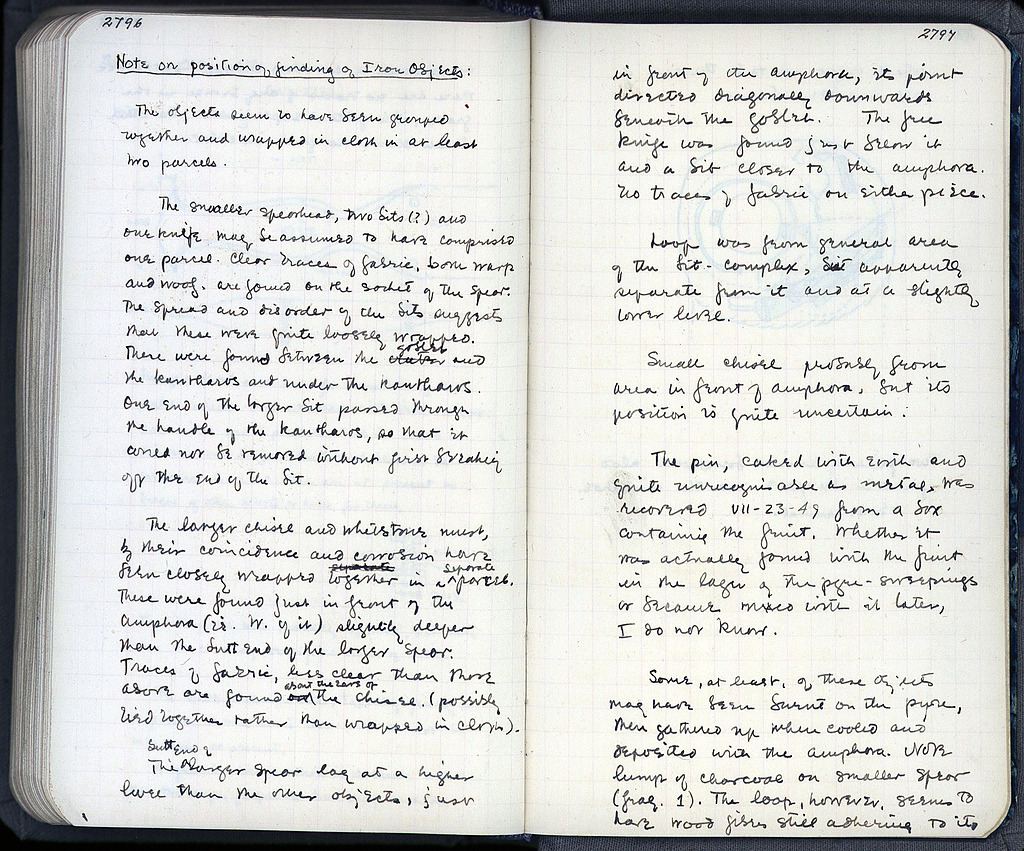 2796
Note on position of finding of Iron Objects:
The objects seem to have been grouped
together and wrapped in cloth in at least
two parcels.
The smaller spearhead, two bits (?) and
one knife may be assumed to have comprised
one parcel. Clear traces of fabric, both warp
and woof, are found on the socket of the spear.
The spread and disorder of the bits suggests
that these were quite loosely wrapped.
goblet
There were found between the and
the kantharos and under the kantharos.
One end of the larger bit passed through
the handle of the kantharos, so that it
could not be removed without first breaking
off the end of the bit.
The larger chisel and whetstone must,
by their coincidence and corrosion have
separate separate
been closely wrapped together in a parcel.
These were found just in front of the
amphora (i.e. W. of it) slightly deeper
than the butt end of the larger spear.
Traces of fabric, less clear than those
about the ears of
above are found on the chisel. (possibly
tied together rather than wrapped in cloth).
butt end of
The larger spear lay at a higher
level than the other objects, just
2797
in front of the amphora, its point
directed diagonally downwards
beneath the goblet. The free
knife was found just below it
and a bit closer to the amphora.
No traces of fabric on either piece.
Loop was from general area
of the bit-complex, but apparently
separate from it and at a slightly
lower level.
Small chisel probably from
area in front of amphora, but its
position is quite uncertain.
The pin, caked with earth and
quite unrecognisable as metal, was
recovered VII-23-49 from a box
containing the fruit. Whether it
was actually found with the fruit
in the layer of the pyre-sweepings
or became mixed with it later,
I do not know.
Some, at least, of these objects
may have been burnt on the pyre,
then gathered up when cooled and
deposited with the amphora. Note
lump of charcoal on smaller spear
(frag. 1). The loop, however, seems to
have wood fibres still adhering to its